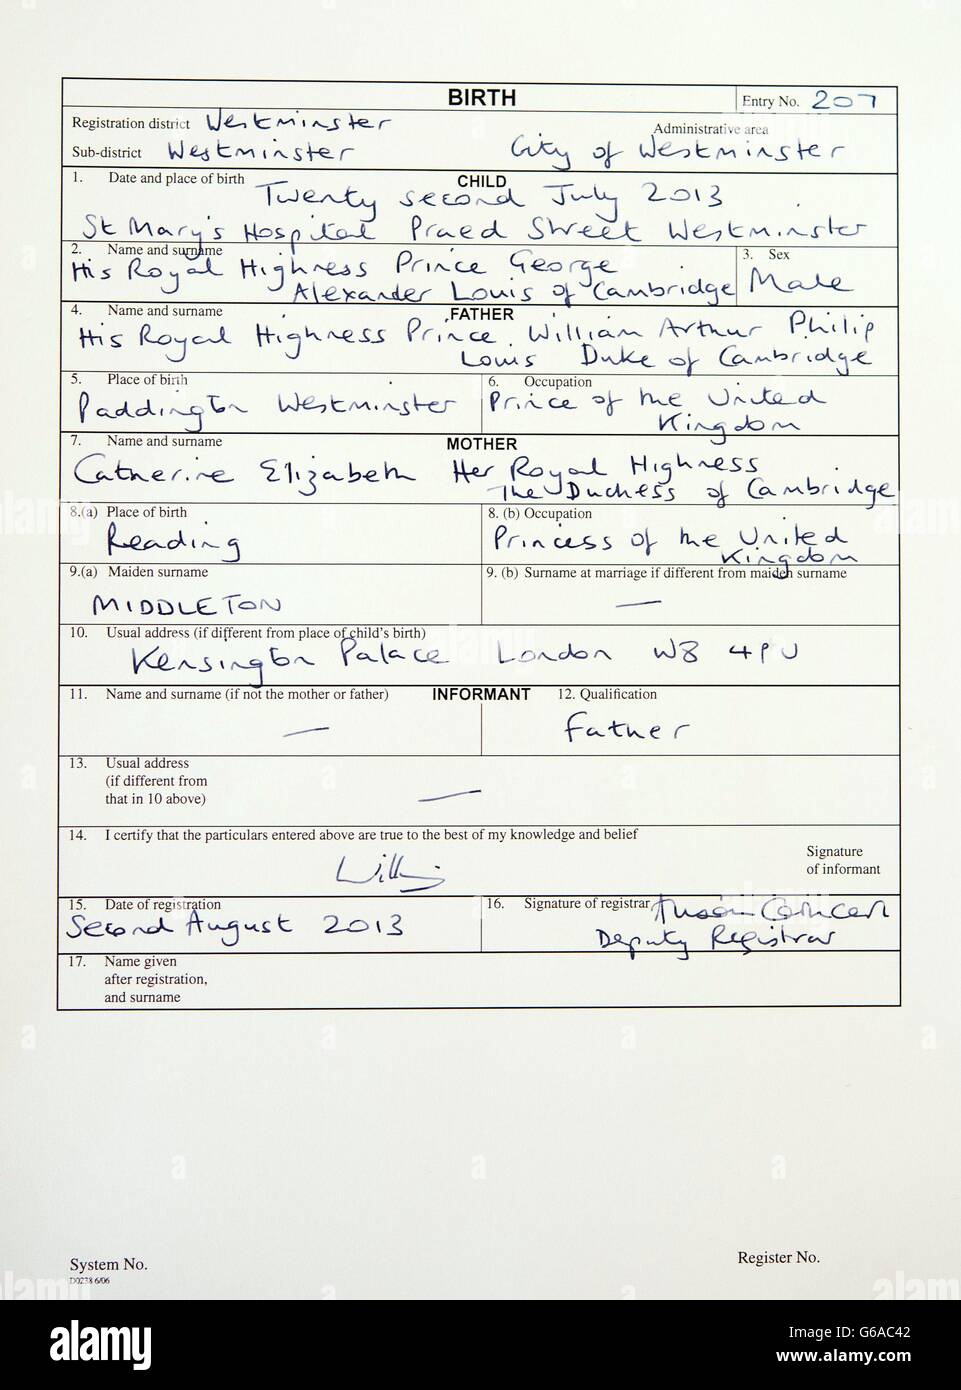 BIRTH
Entry No. 207
Registration district Westminster
Administrative area
Sub-district Westminster
City of Westminster
1. Date and place of birth
CHILD
Twenty second July 2013
St Mary's Hospital Praed Street Westminster
2. Name and surname
His Royal Highness Prince George
Alexander Louis of Cambridge
3. Sex
Male
4. Name and surname
FATHER
His Royal Highness Prince William Arthur Philip
Louis Duke of Cambridge
5. Place of birth
Paddington Westminster
6. Occupation
Prince of the United
Kingdom
7. Name and surname
MOTHER
Catherine Elizabeth Her Royal Highness
The Duchess of Cambridge
8.(a) Place of birth
Reading
8. (b) Occupation
Princess of the United
Kingdom
9.(a) Maiden surname
MIDDLETON
9. (b) Surname at marriage if different from maiden surname
—
10. Usual address (if different from place of child's birth)
Kensington Palace London W8 4PU
11. Name and surname (if not the mother or father)
INFORMANT
—
12. Qualification
Father
13. Usual address
(if different from
that in 10 above)
—
14. I certify that the particulars entered above are true to the best of my knowledge and belief
Signature
of informant
15. Date of registration
Second August 2013
16. Signature of registrar
Deputy Registrar
17. Name given
after registration,
and surname
System No.
D0238 6/06
Register No.
alamy
Image ID: G6AC42
www.alamy.com